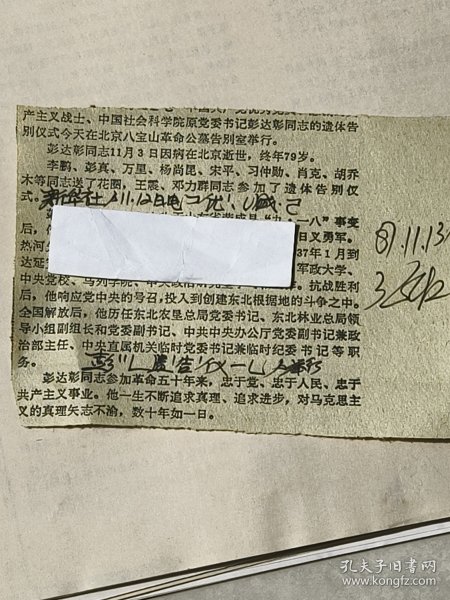 产主义战士、中国社会科学院原党委书记彭达彰同志的遗体告
别仪式今天在北京八宝山革命公墓告别室举行。
彭达彰同志11月3日因病在北京逝世，终年79岁。
李鹏、彭真、万里、杨尚昆、宋平、习仲勋、肖克、胡乔
木等同志送了花圈，王震、邓力群同志参加了遗体告别仪
式。新华社 11.12日电
一八”事变
后，日义勇军。
热河 37年1月到
达延 军政大学、
中央党校、马列学院、抗战胜利
后，他响应党中央的号召，投入到创建东北根据地的斗争之中。
全国解放后，他历任东北农垦总局党委书记、东北林业总局领
导小组副组长和党委副书记、中共中央办公厅党委副书记兼政
治部主任、中央直属机关临时党委书记兼临时纪委书记等职
务。
彭达彰同志参加革命五十年来，忠于党、忠于人民、忠于
共产主义事业。他一生不断追求真理、追求进步，对马克思主
义的真理矢志不渝，数十年如一日。
87.11.13
孔夫子旧书网
www.kongfz.com